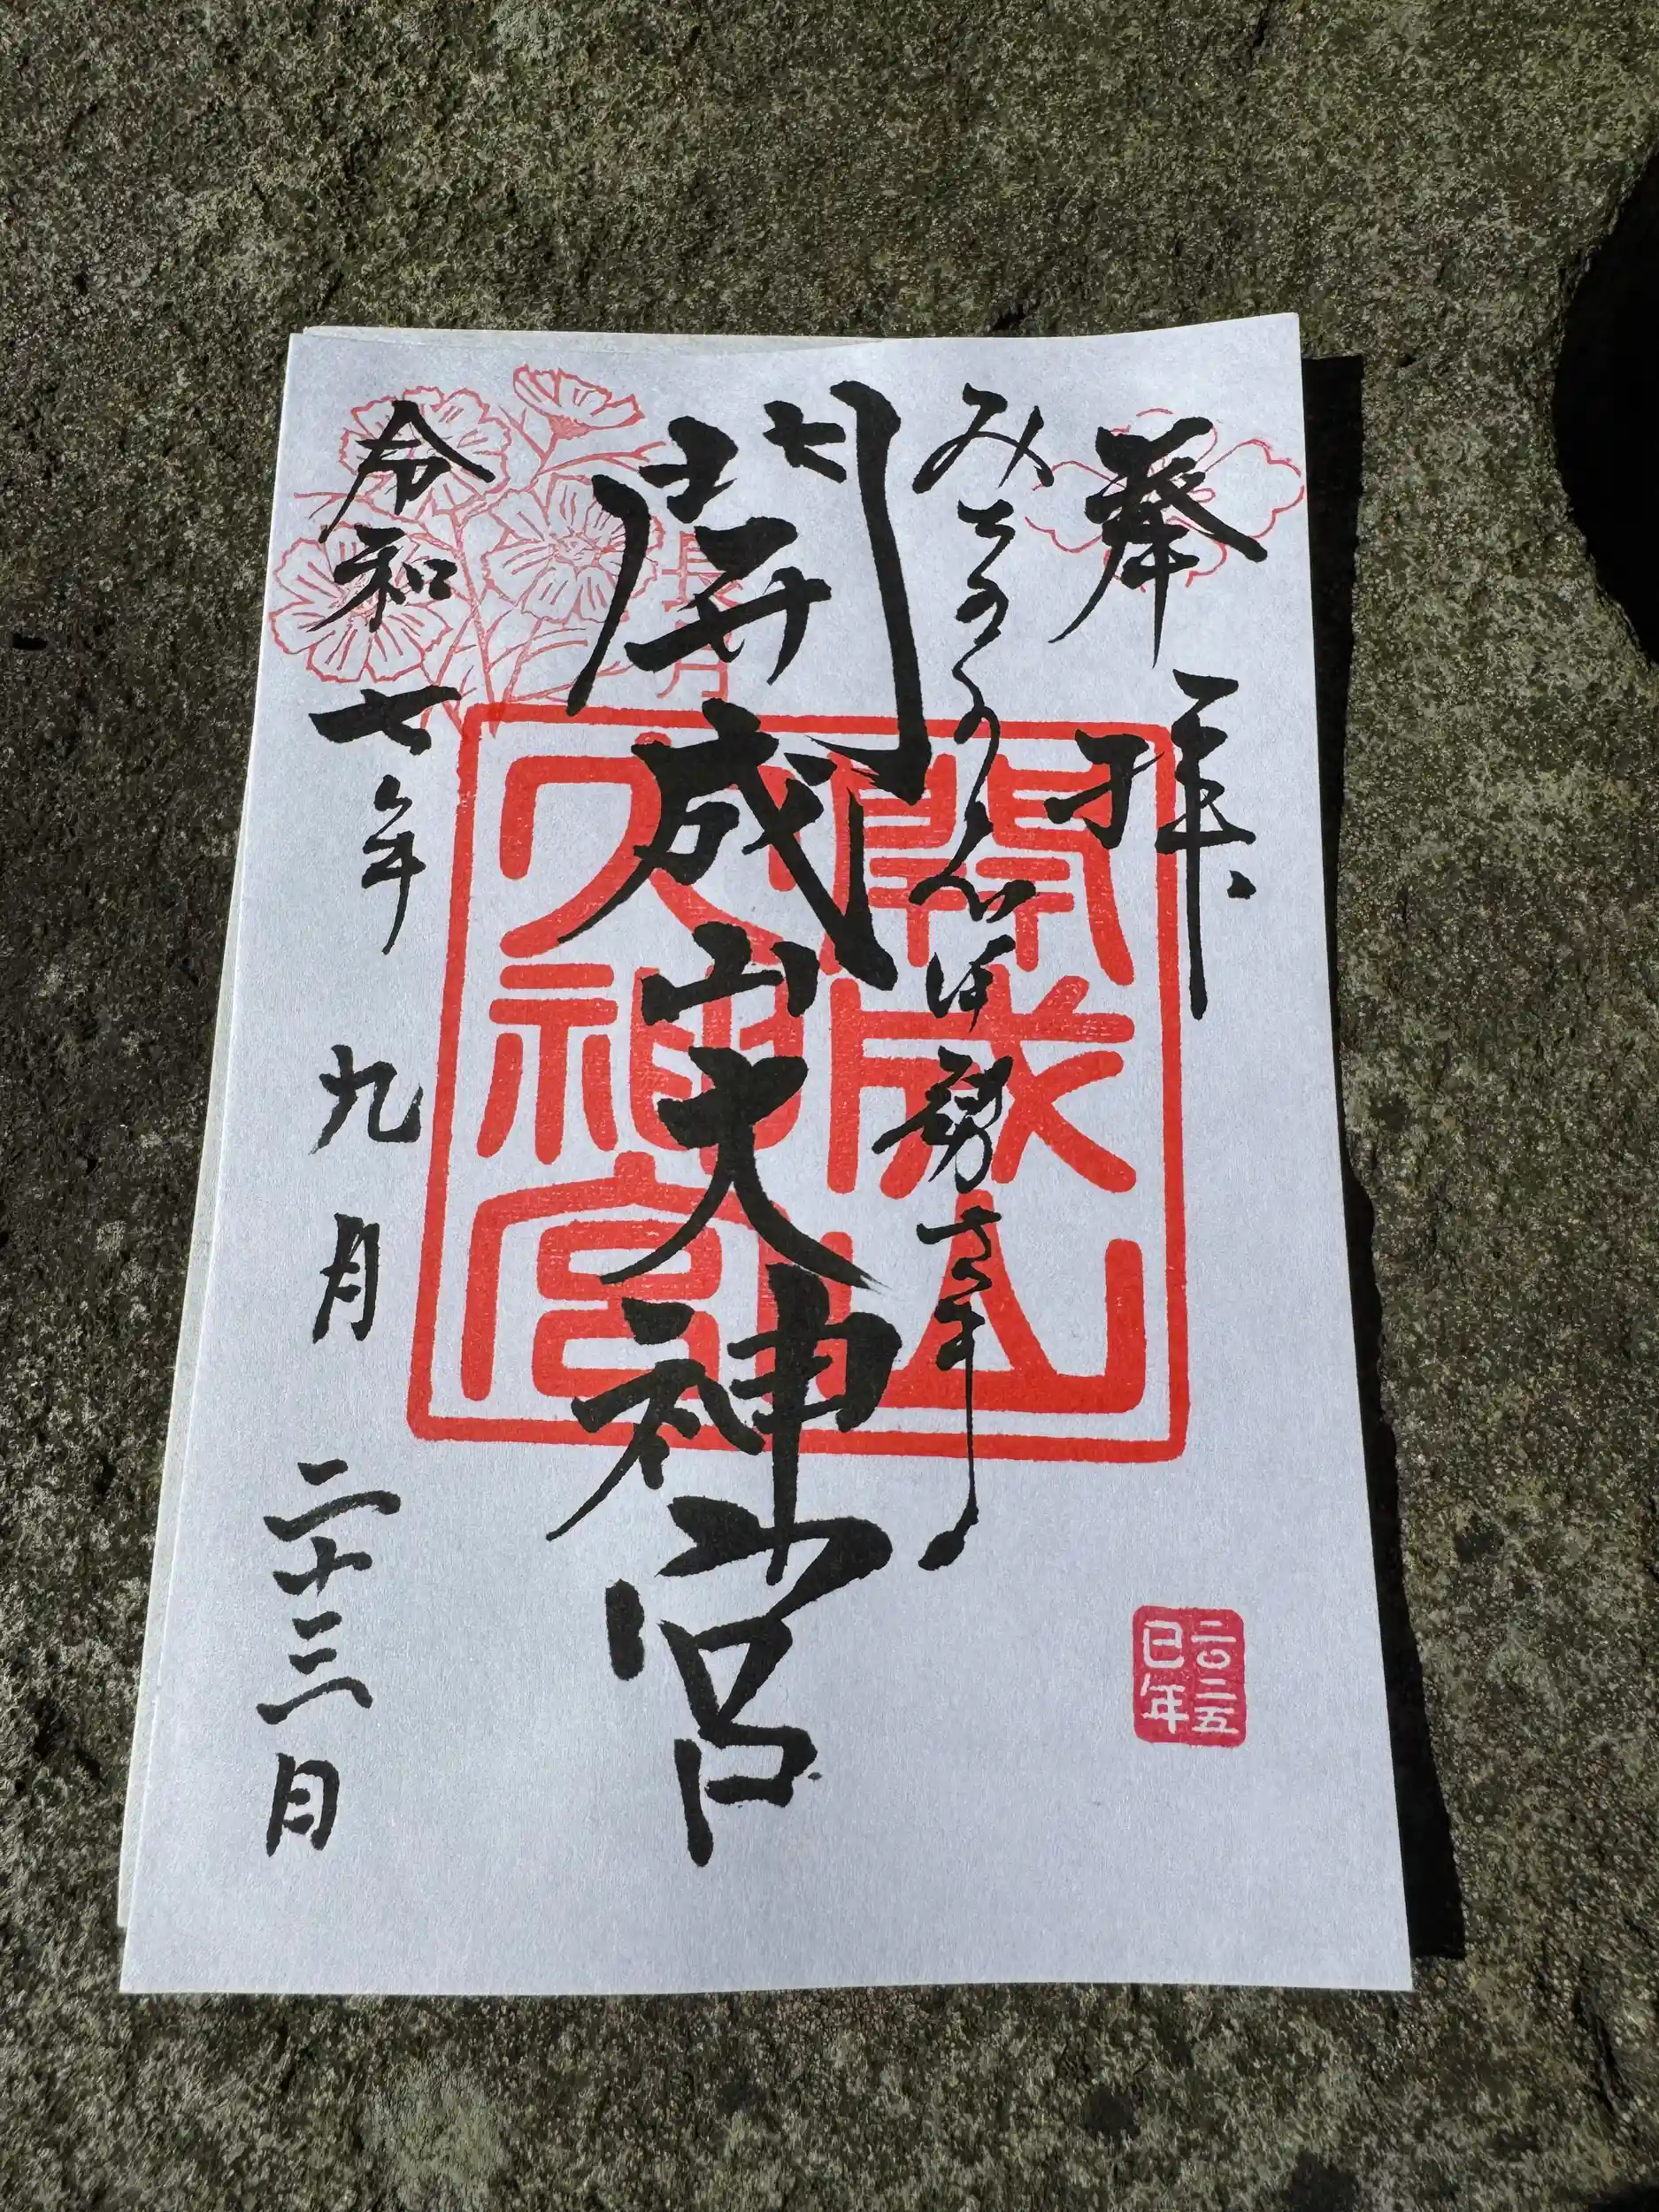 奉拝
みちのくのお伊勢さま
開成山大神宮
令和七年九月二十三日
長月
開成山
大神宮
二〇二五
巳年